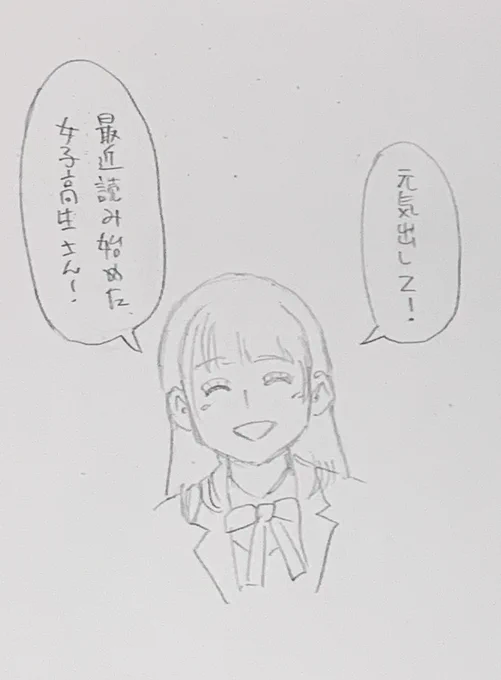 元気出して！
最近読み始めた、
女子高生さん！